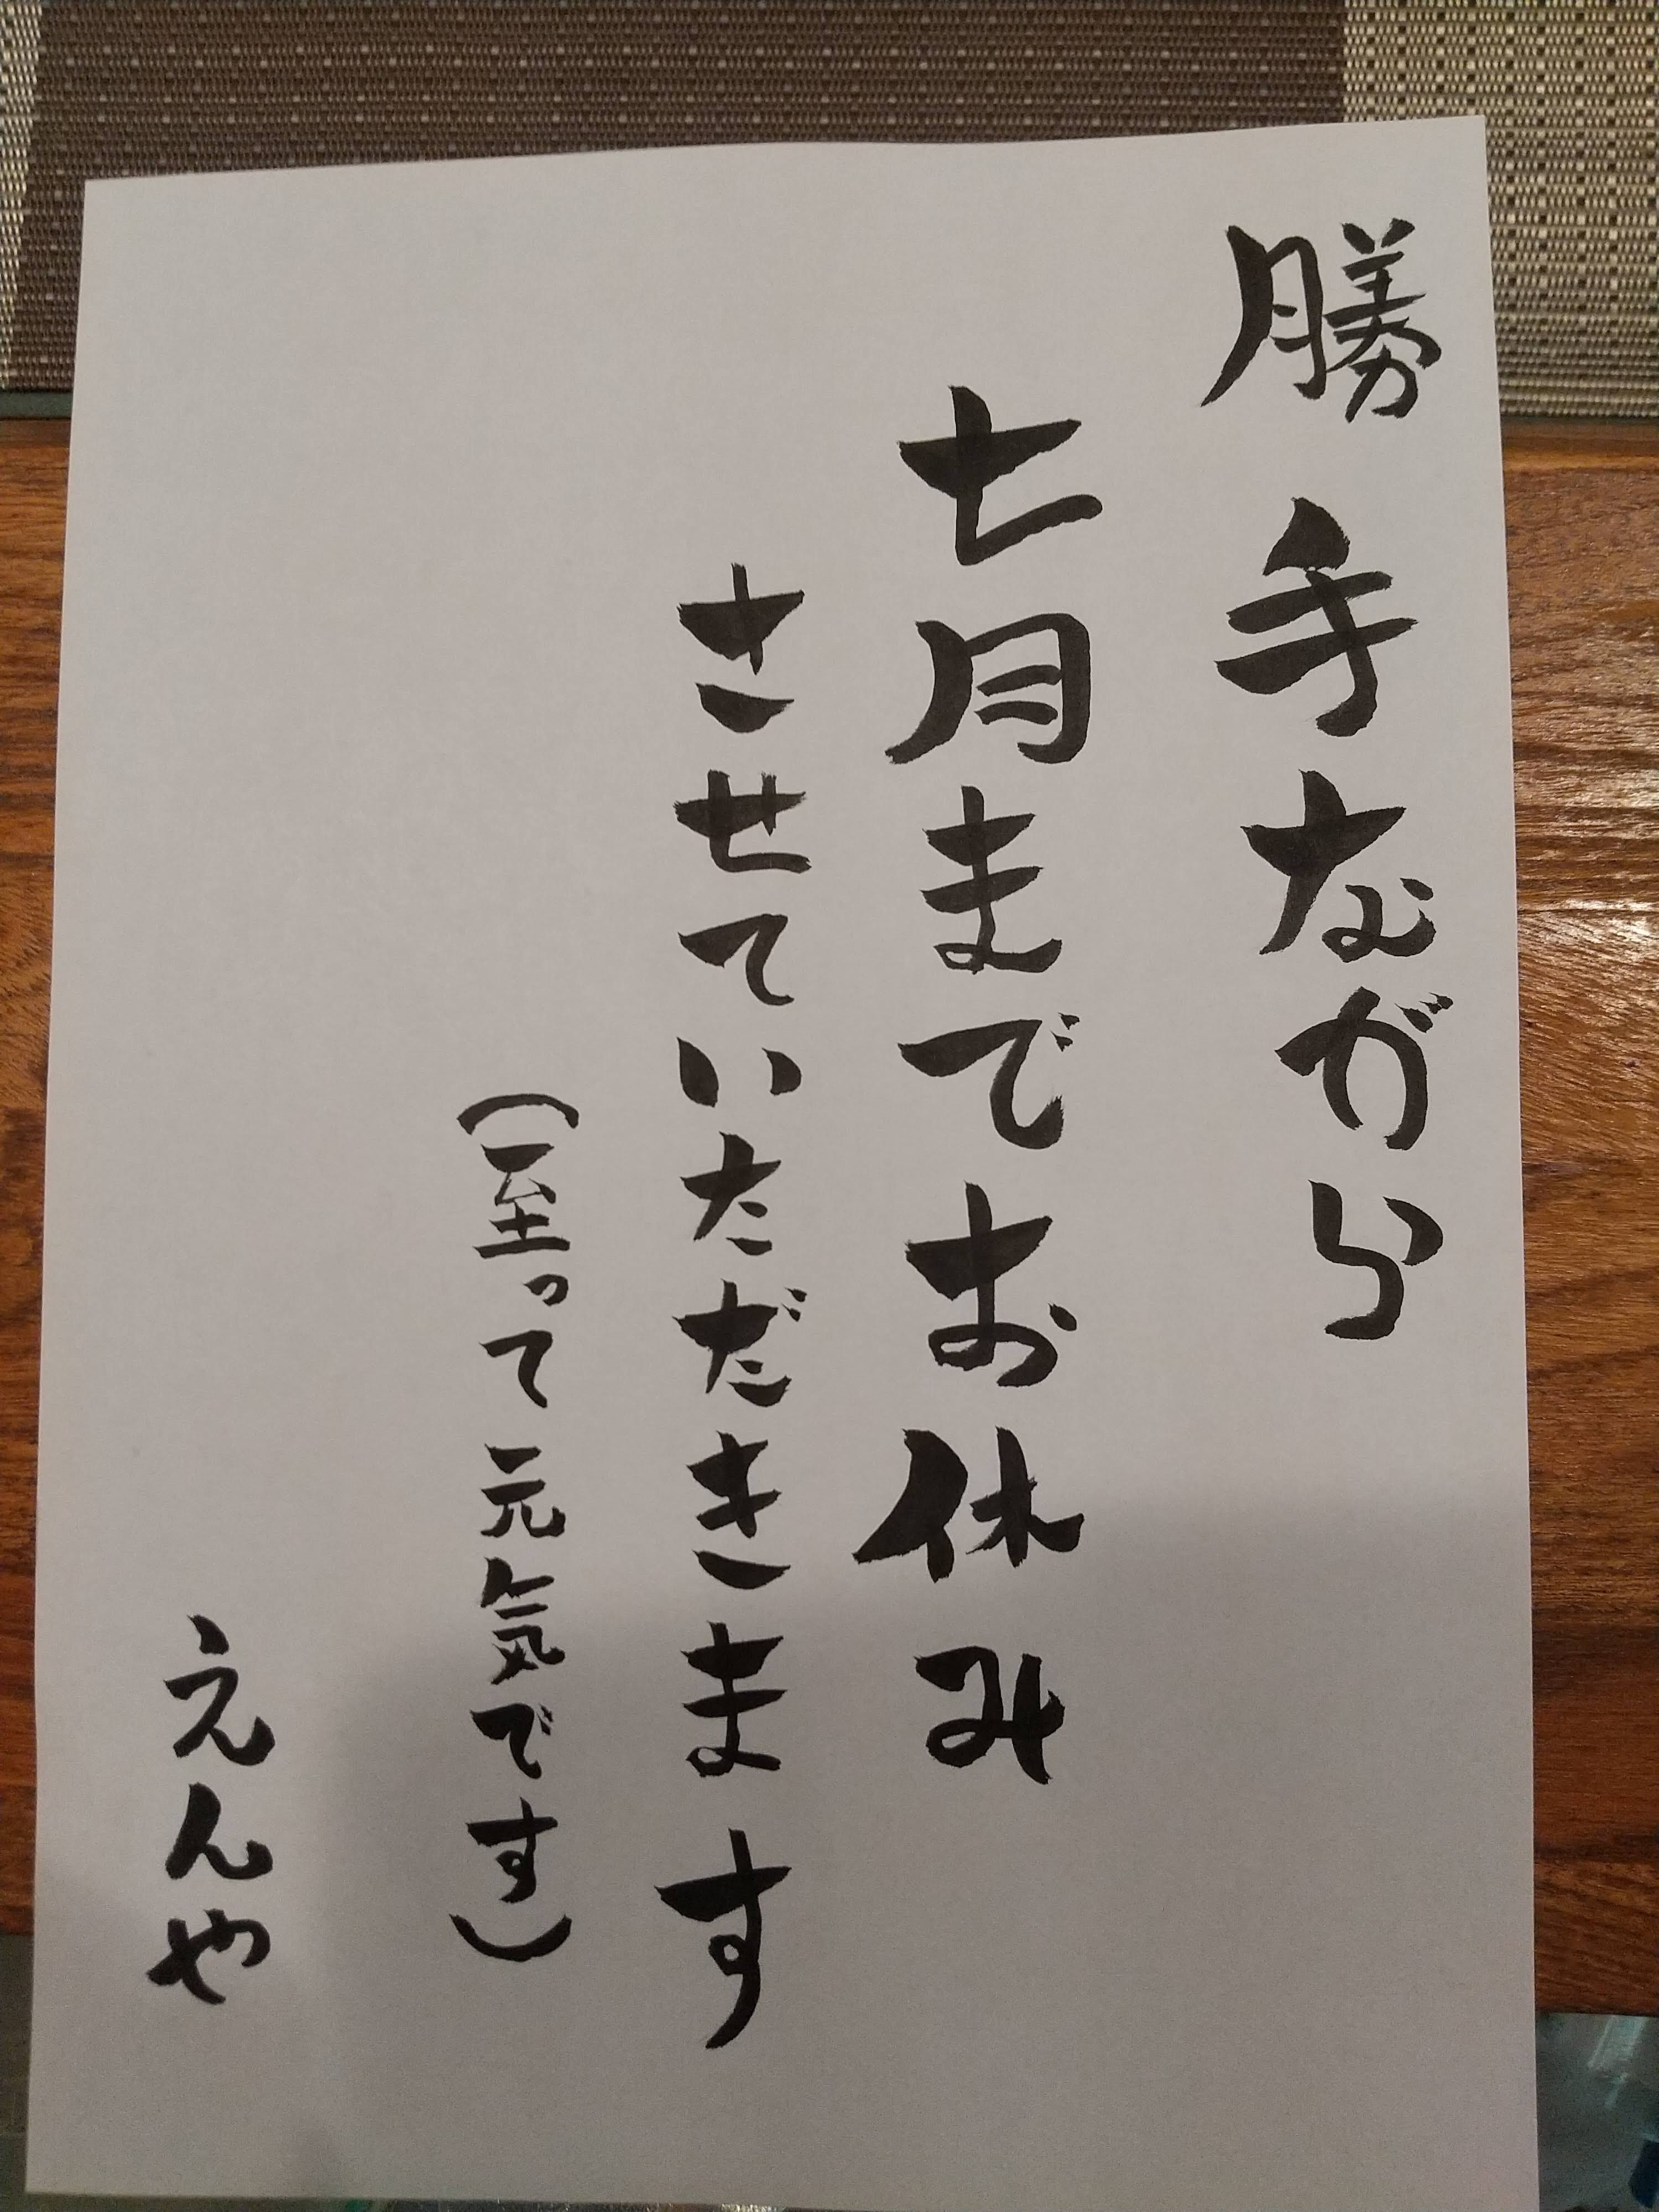 勝手ながら
七月までお休み
させていただきます
（至って元気です）
えんや